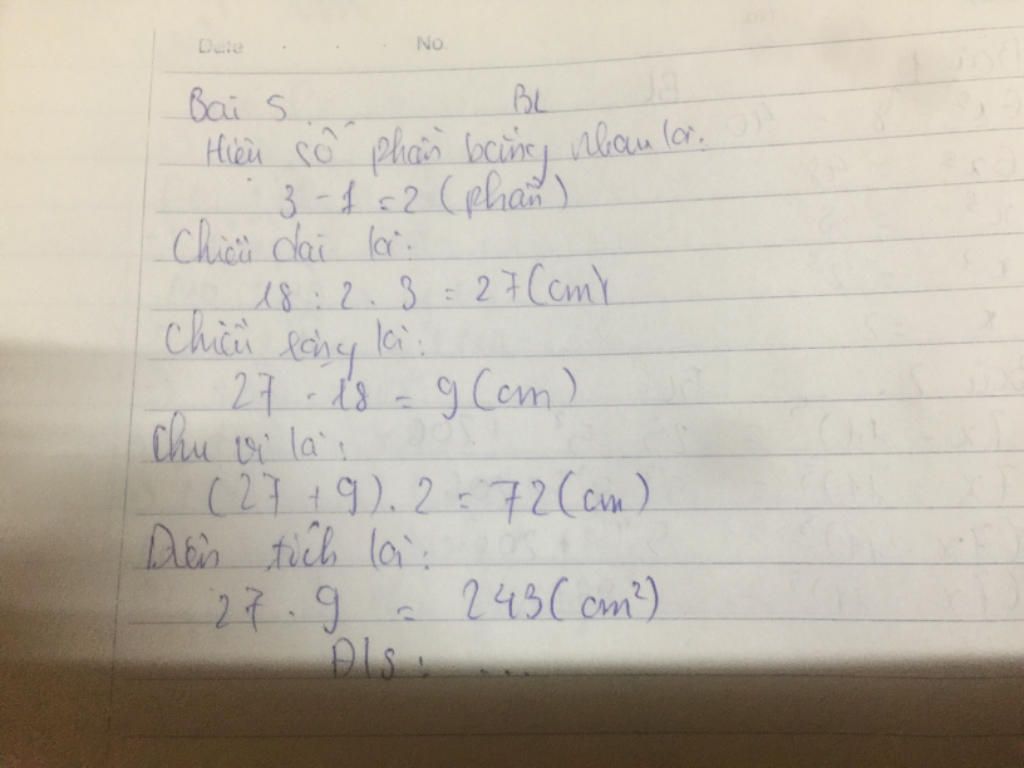 Date No
Bài 5. BL
Hiệu số phần bằng nhau là:
3 - 1 = 2 (phần)
Chiều dài là:
18 : 2 . 3 = 27 (cm)
Chiều rộng là:
27 - 18 = 9 (cm)
Chu vi là:
(27 + 9) . 2 = 72 (cm)
Diện tích là:
27 . 9 = 243 (cm²)
Đ/s : ...